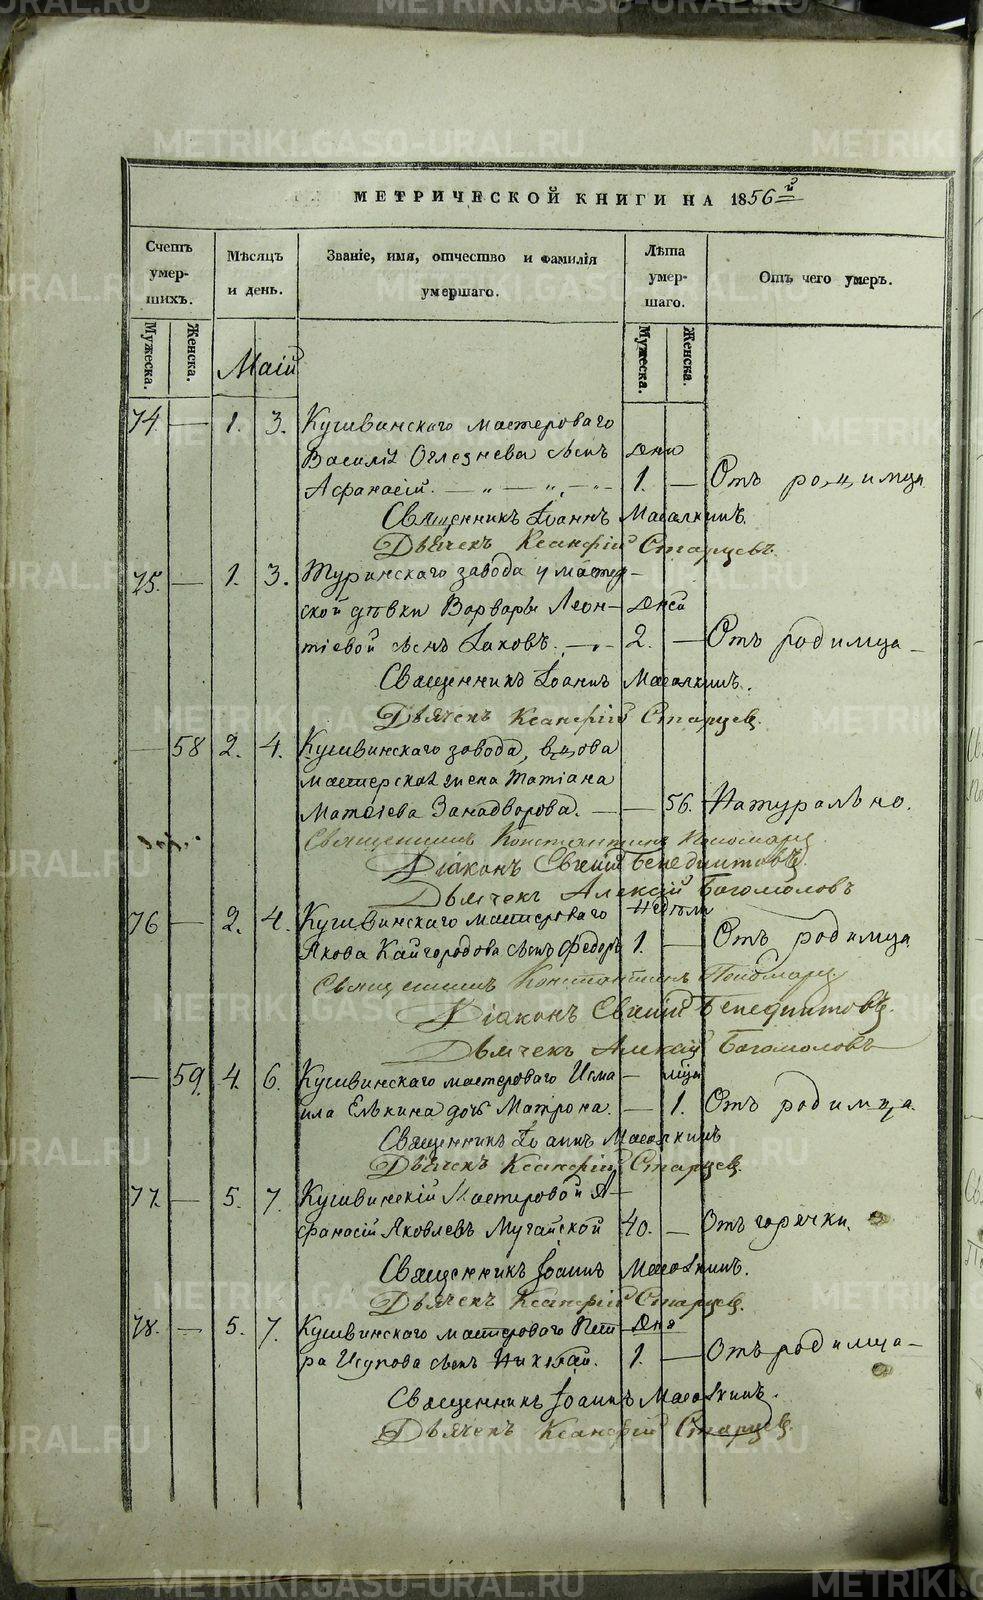 МЕТРИЧЕСКОЙ КНИГИ НА 1856й
Счетъ умер- шихъ.
Мѣсяцъ и день.
Званіе, имя, отчество и фамилія умершаго.
Лѣта умер- шаго.
Отъ чего умеръ.
Мужеска. Женска. Мужеска. Женска.
Маій
74. — 1. 3. Кушвинскаго мастероваго
Василія Оглезнева сынъ дня
Афанасій. 1. — Отъ родимца
Священникъ Іоаннъ Масалкинъ.
Дьячекъ Ксанфій Старцевъ.
75. — 1. 3. Туринскаго завода умастер-
ской дѣвки Варвары Леон- дней
тіевой сынъ Іаковъ. 2. — Отъ родимца
Священникъ Іоаннъ Масалкинъ.
Дьячекъ Ксанфій Старцевъ.
— 58 2. 4. Кушвинскаго завода, вдова
мастерская жена Татіана
Матѳеева Занадворова. — 56. Натурально.
Священникъ Константинъ Пономаревъ
Діаконъ Евгеній Бенедиктовъ.
Дьячекъ Алексій Богомоловъ
76 — 2. 4. Кушвинскаго мастероваго недѣли
Якова Кайгородова сынъ Ѳедоръ 1. — Отъ родимца
Священникъ Константинъ Пономаревъ
Діаконъ Евгеній Бенедиктовъ.
Дьячекъ Алексій Богомоловъ
— 59. 4. 6. Кушвинскаго мастероваго Исма- — мѣсяц
ила Елькина дочь Матрона. — 1. Отъ родимца.
Священникъ Іоаннъ Масалкинъ
Дьячекъ Ксанфій Старцевъ.
77. — 5. 7. Кушвинскій Мастеровой А-
фанасій Яковлевъ Мугайской 40. — Отъ горячки.
Священникъ Іоаннъ Масалкинъ.
Дьячекъ Ксанфій Старцевъ.
78. — 5. 7. Кушвинскаго мастероваго Пет- дня
ра Исупова сынъ Никитай. 1. — Отъ родимца
Священникъ Іоаннъ Масалкинъ.
Дьячекъ Ксанфій Старцевъ.
METRIKI.GASO-URAL.RU